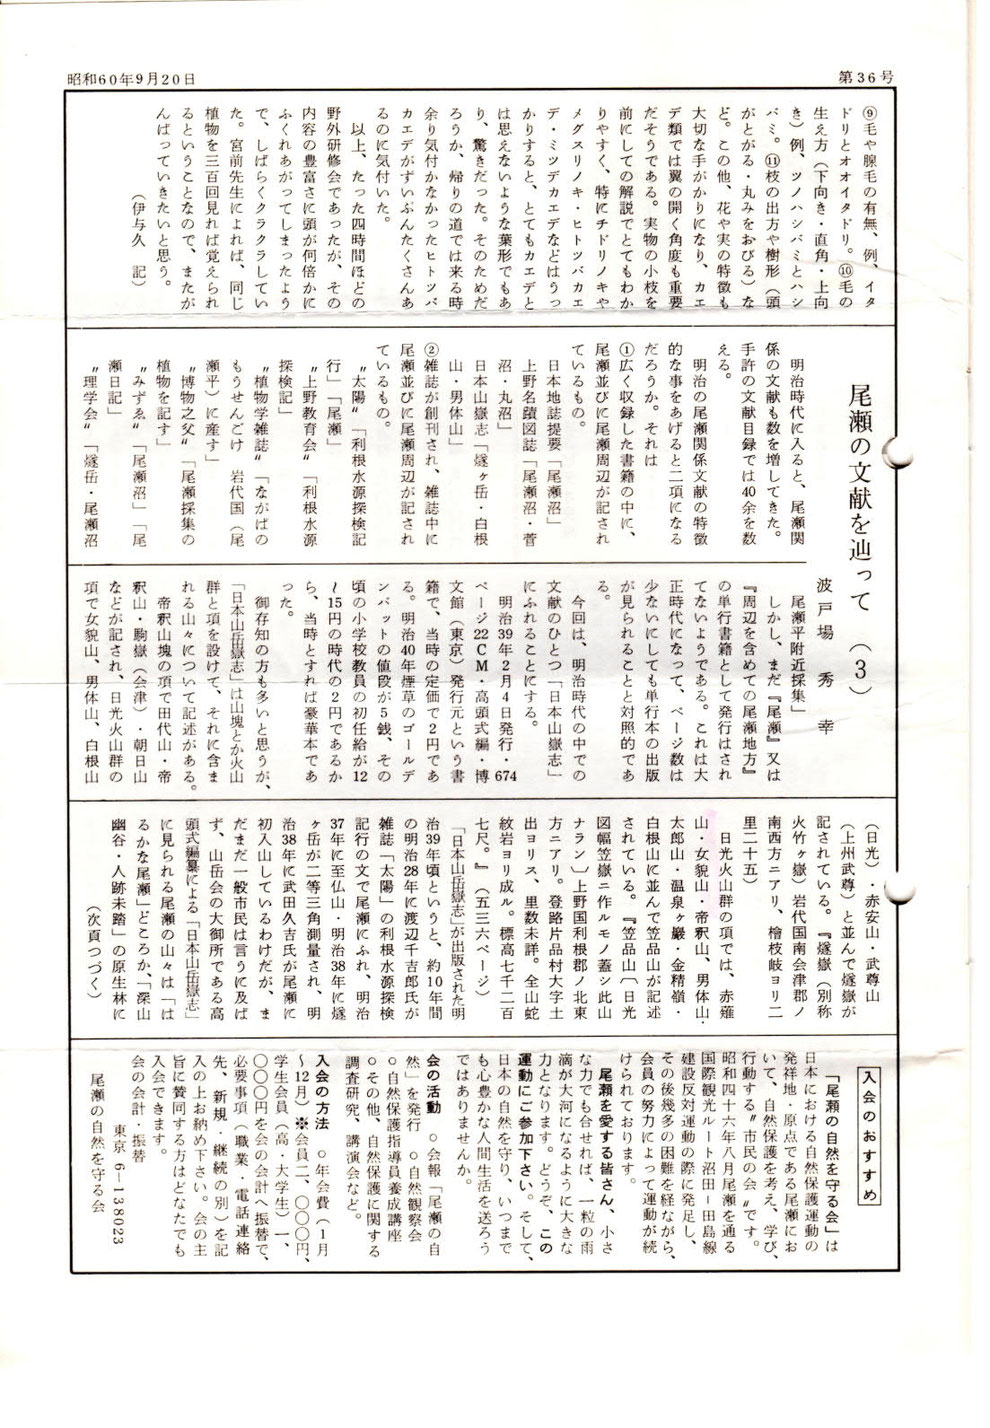 昭和60年9月20日
第36号
⑨毛や腺毛の有無、例、イタ
ドリとオオイタドリ。⑩毛の
生え方（下向き・直角・上向
き）例、ツノハシバミとハシ
バミ。⑪枝の出方や樹形（頭
がとがる・丸みをおびる）な
ど。この他、花や実の特徴も
大切な手がかりになり、カエ
デ類では翼の開く角度も重要
だそうである。実物の小枝を
前にしての解説でとてもわか
りやすく、特にチドリノキや
メグスリノキ・ヒトツバカエ
デ・ミツデカエデなどはうっ
かりすると、とてもカエデと
は思えないような葉形でもあ
り、驚きだった。そのためだ
ろうか、帰りの道では来る時
余り気付かなかったヒトツバ
カエデがずいぶんたくさんあ
るのに気付いた。
以上、たった四時間ほどの
野外研修会であったが、その
内容の豊富さに頭が何倍かに
ふくれあがってしまったよう
で、しばらくクラクラしてい
た。宮前先生によれば、同じ
植物を三百回見れば覚えられ
るということなので、またが
んばっていきたいと思う。
（伊与久　記）
尾瀬の文献を辿って（3）
波戸場　秀　幸
明治時代に入ると、尾瀬関
係の文献も数を増してきた。
手許の文献目録では40余を数
える。
明治の尾瀬関係文献の特徴
的な事をあげると二項になる
だろうか。それは
①広く収録した書籍の中に、
尾瀬並びに尾瀬周辺が記され
ているもの。
日本地誌提要「尾瀬沼」
上野名蹟図誌「尾瀬沼・菅
沼・丸沼」
日本山嶽志「燧ヶ岳・白根
山・男体山」
②雑誌が創刊され、雑誌中に
尾瀬並びに尾瀬周辺が記され
ているもの。
〝太陽〟「利根水源探検記
行」「尾瀬」
〝上野教育会〟「利根水源
探検記」
〝植物学雑誌〟「ながばの
もうせんごけ　岩代国（尾
瀬平）に産す」
〝博物之父〟「尾瀬採集の
植物を記す」
〝みずゑ〟「尾瀬沼」「尾
瀬日記」
〝理学会〟「燧岳・尾瀬沼
尾瀬平附近採集」
しかし、まだ『尾瀬』又は
『周辺を含めての尾瀬地方』
の単行書籍として発行はされ
てないようである。これは大
正時代になって、ページ数は
少ないにしても単行本の出版
が見られることと対照的であ
る。
今回は、明治時代の中での
文献のひとつ「日本山嶽志」
にふれることにする。
明治39年2月4日発行・674
ページ22CM・高頭式編・博
文館（東京）発行元という書
籍で、当時の定価で2円であ
る。明治40年煙草のゴールデ
ンバットの値段が5銭、その
頃の小学校教員の初任給が12
～15円の時代の2円であるか
ら、当時とすれば豪華本であ
った。
御存知の方も多いと思うが、
「日本山岳嶽志」は山塊とか火山
群と項を設けて、それに含ま
れる山々について記述がある。
帝釈山塊の項で田代山・帝
釈山・駒嶽（会津）・朝日山
などが記され、日光火山群の
項で女貌山、男体山、白根山
（日光）・赤安山・武尊山
（上州武尊）と並んで燧嶽が
記されている。『燧嶽（別称
火竹ヶ嶽）岩代国南会津郡ノ
南西方ニアリ、檜枝岐ヨリ二
里二十五）
日光火山群の項では、赤薙
山・女貌山・帝釈山、男体山・
太郎山・温泉ヶ巖・金精嶺・
白根山に並んで笠品山が記述
されている。『笠品山〔日光
図幅笠嶽ニ作ルモノ蓋シ此山
ナラン〕上野国利根郡ノ北東
方ニアリ。登路片品村大字土
出ヨリス、里数未詳。全山蛇
紋岩ヨリ成ル。標高七千二百
七尺。』（五三六ページ）
「日本山岳嶽志」が出版された明
治39年頃というと、約10年間
の明治28年に渡辺千吉郎氏が
雑誌「太陽」の利根水源探検
記行の文で尾瀬にふれ、明治
37年に至仏山・明治38年に燧
ヶ岳が二等三角測量され、明
治38年に武田久吉氏が尾瀬に
初入山しているわけだが、ま
だまだ一般市民は言うに及ば
ず、山岳会の大御所である高
頭式編纂による「日本山岳嶽志」
に見られる尾瀬の山々は「は
るかな尾瀬」どころか、「深山
幽谷・人跡未踏」の原生林に
（次頁つづく）
入会のおすすめ
「尾瀬の自然を守る会」は
日本における自然保護運動の
発祥地・原点である尾瀬にお
いて、自然保護を考え、学び、
行動する〝市民の会〟です。
昭和四十六年八月尾瀬を通る
国際観光ルート沼田－田島線
建設反対運動の際に発足し、
その後幾多の困難を経ながら、
会員の努力によって運動が続
けられております。
尾瀬を愛する皆さん、小さ
な力でも合せれば、一粒の雨
滴が大河になるように大きな
力となります。どうぞ、この
運動にご参加下さい。そして、
日本の自然を守り、いつまで
も心豊かな人間生活を送ろう
ではありませんか。
会の活動　○会報「尾瀬の自
然」を発行　○自然観察会
○自然保護指導員養成講座
○その他、自然保護に関する
調査研究、講演会など。
入会の方法　○年会費（1月
～12月）※会員二、〇〇〇円、
学生会員（高・大学生）一、
〇〇〇円を会の会計へ振替で、
必要事項（職業・電話連絡
先、新規・継続の別）を記
入の上お納め下さい。会の主
旨に賛同する方はどなたでも
入会できます。
会の会計・振替
東京　6－138023
尾瀬の自然を守る会